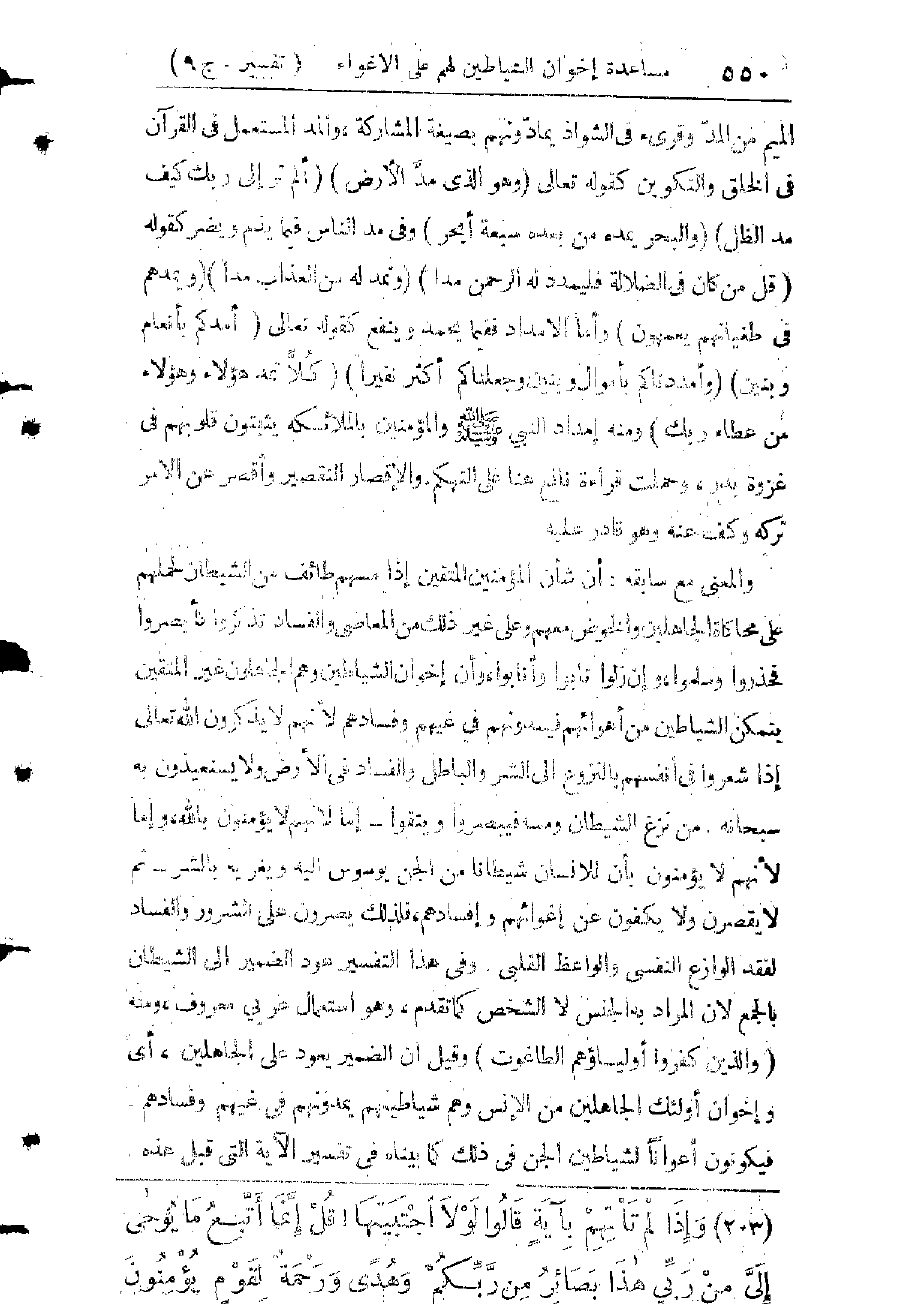 ٥٥٠ مساعدة إخوان الشياطين لهم على الاغواء ( تفسير . ج ٩ )
الميم من المدّ وقرىء فى الشواذ يمادّونهم بصيغة المشاركة ، والمد المستعمل فى القرآن
فى الخلق والتكوين كقوله تعالى (وهو الذى مدَّ الأرض ) ( ألم تر إلى ربك كيف
مد الظل) (والبحر يمده من بعده سبعة أبحر ) وفى مد الناس فيما يذم ويضر كقوله
( قل من كان فى الضلالة فليمدد له الرحمن مدا ) (ونمد له من العذاب مداً )(ويمدهم
فى طغيانهم يعمهون ) وأما الامداد ففيما يحمد وينفع كقوله تعالى ( أمدكم بأنعام
وبنين) (وأمددناكم بأموال وبنين وجعلناكم أكثر نفيراً ) ( كلاًّ نمد هؤلاء وهؤلاء
من عطاء ربك ) ومنه إمداد النبي ﷺ والمؤمنين بالملائكة يثبتون قلوبهم فى
غزوة بدر ، وحملت قراءة نافع هنا على التهكم . والإقصار التقصير وأقصر عن الامر
تركه وكف عنه وهو قادر عليه
والمعنى مع سابقه : أن شأن المؤمنين المتقين إذا مسهم طائف من الشيطان لحملهم
على محاكاة الجاهلين والخوض معهم وعلى غير ذلك من المعاصى والفساد تذكروا فأبصروا
فحذروا وسلموا، وإن زلوا تابوا وأنابوا، وأن إخوان الشياطين وهم الجاهلون غير المتقين
يتمكن الشياطين من أهوائهم فيمدونهم في غيهم وفسادهم لأنهم لا يذكرون الله تعالى
إذا شعروا فى أنفسهم بالنزوع الى الشر والباطل والفساد فى الأرض ولا يستعيذون به
سبحانه . من نزغ الشيطان ومسه فيبصروا ويتقوا ــ إما لأنهم لا يؤمنون بالله، وإما
لأنهم لا يؤمنون بأن للانسان شيطانا من الجن يوسوس اليه ويغريه بالشر ــ ثم
لا يقصرن ولا يكفون عن إغوائهم وإفسادهم، فلذلك يصرون على الشرور والفساد
لفقد الوازع النفسى والواعظ القلبى . وفى هذا التفسير عود الضمير الى الشيطان
بالجمع لان المراد به الجنس لا الشخص كما تقدم ، وهو استعمال عربي معروف ، ومنه
( والذين كفروا أوليـاؤهم الطاغوت ) وقيل ان الضمير يعود على الجاهلين ، أى
وإخوان أولئك الجاهلين من الإنس وهم شياطينهم يمدونهم في غيهم وفسادهم .
فيكونون أعواناً لشياطين الجن فى ذلك كما بيناه فى تفسير الآية التى قبل هذه .
(٢٠٣) وَإِذَا لَمْ تَأْتِهِمْ بِآيَةٍ قَالُوا لَوْلاَ اجْتَبَيْتَهَا ! قُلْ إِنَّمَا أَتَّبِعُ مَا يُوحَى
إِلَيَّ مِنْ رَبِّي هٰذَا بَصَائِرُ مِن رَّبِّكُمْ وَهُدًى وَرَحْمَةٌ لِقَوْمٍ يُؤْمِنُونَ